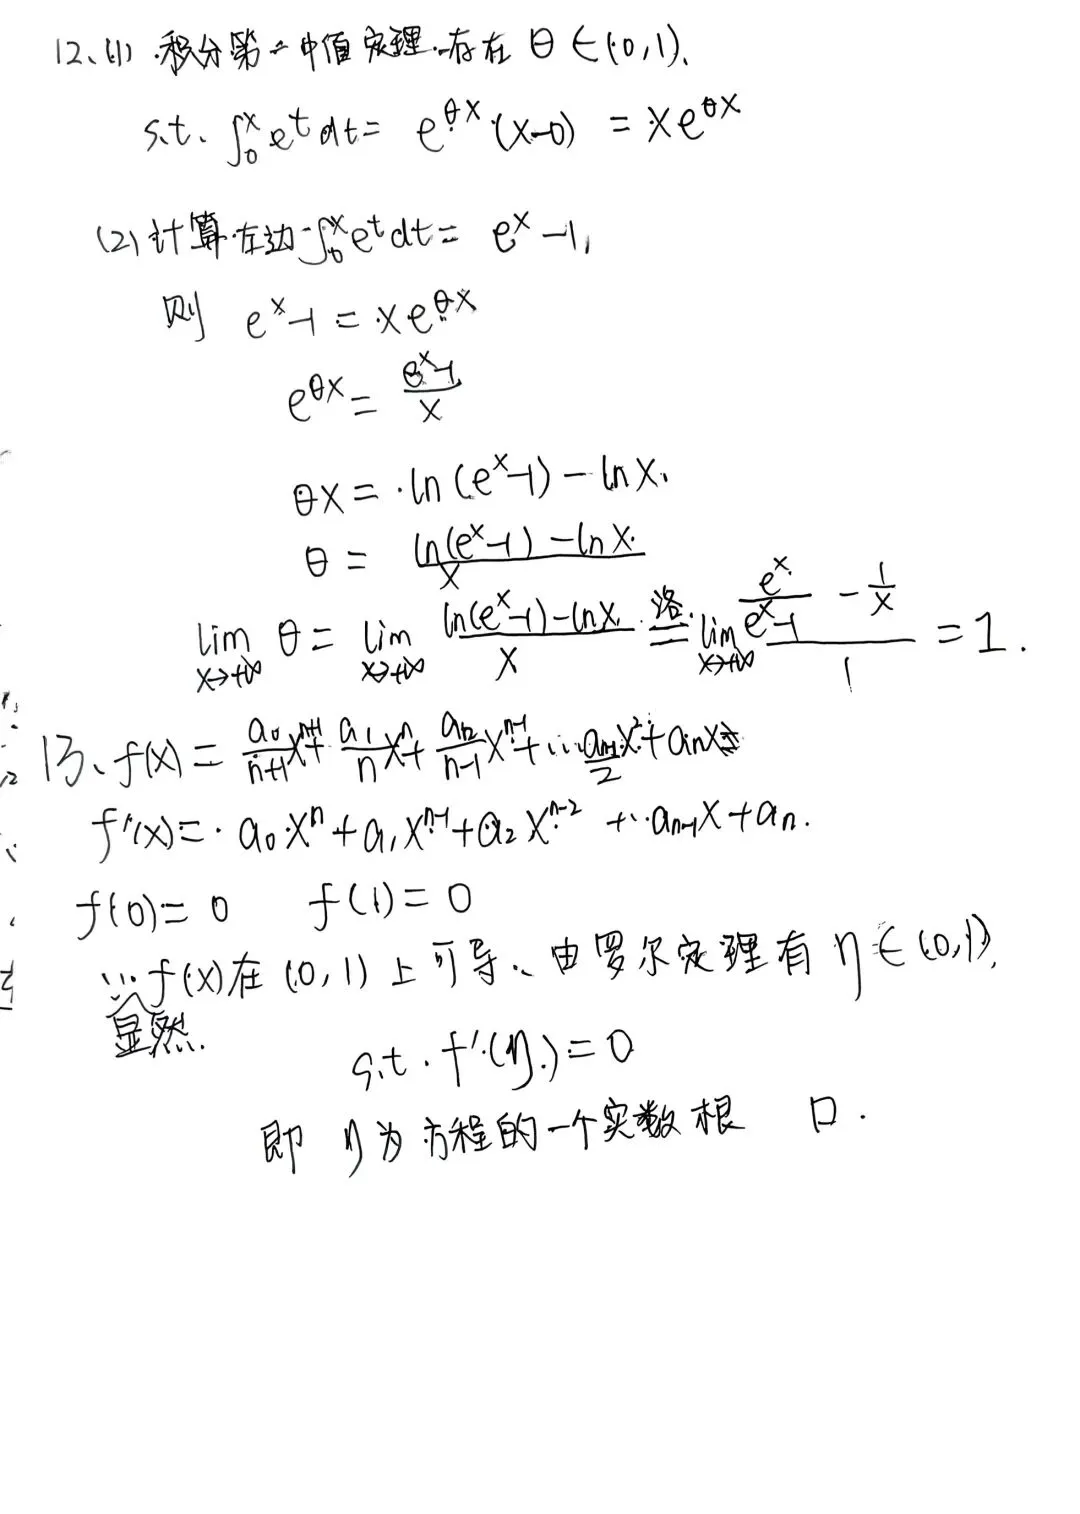 12、(1) 积分第一中值定理.存在 θ∈(0,1).
s.t. ∫₀ˣ eᵗdt = e^{θx}·(x-0) = xe^{θx}
(2) 计算左边 ∫₀ˣ eᵗdt = eˣ-1,
则 eˣ-1 = xe^{θx}
e^{θx} = (eˣ-1)/x
θx = ln(eˣ-1) - lnx.
θ = (ln(eˣ-1) - lnx)/x
lim_{x→+∞} θ = lim_{x→+∞} (ln(eˣ-1) - lnx)/x 洛= lim_{x→+∞} (eˣ/(eˣ-1) - 1/x)/1 = 1.
13、f(x) = a₀/(n+1) x^{n+1} + a₁/n xⁿ + a₂/(n-1) x^{n-1} + ... a_{n-1}/2 x² + aₙx
f'(x) = a₀xⁿ + a₁x^{n-1} + a₂x^{n-2} + ... a_{n-1}x + aₙ.
f(0) = 0 f(1) = 0
f(x)在(0,1)上可导、由罗尔定理有 η∈(0,1),
显然.
s.t. f'(η) = 0
即 η为方程的一个实数根 □.